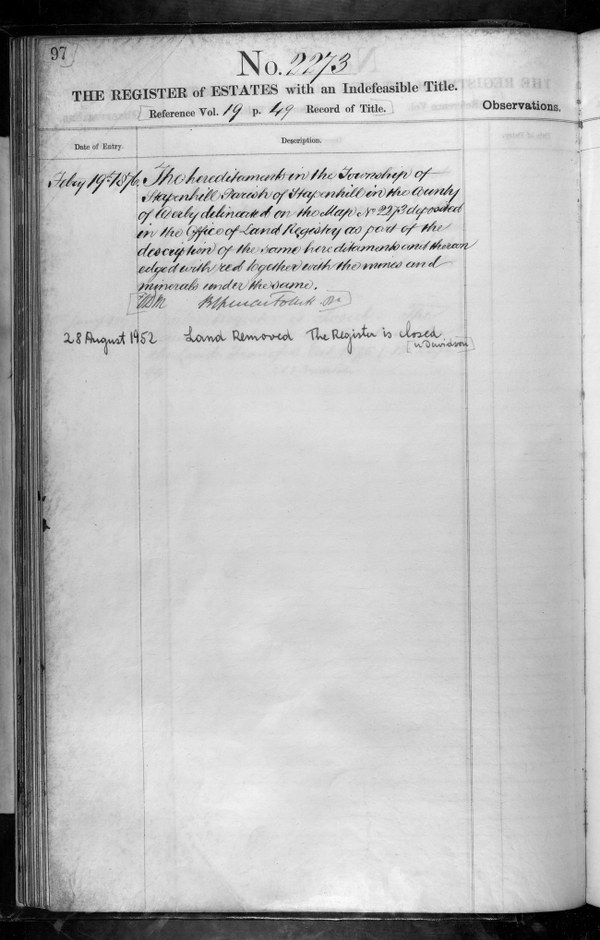 97
No. 2273
THE REGISTER of ESTATES with an Indefeasible Title.
Reference Vol. 19 p. 49 Record of Title.
Observations.
Date of Entry.
Description.
Feby 19th 1876. The hereditaments in the Township of
Stapenhill Parish of Stapenhill in the County
of Derby delineated on the Map No 2273 deposited
in the Office of Land Registry as part of the
description of the same hereditaments and thereon
edged with red together with the mines and
minerals under the same.
28 August 1952 Land Removed The Register is closed
Davidson